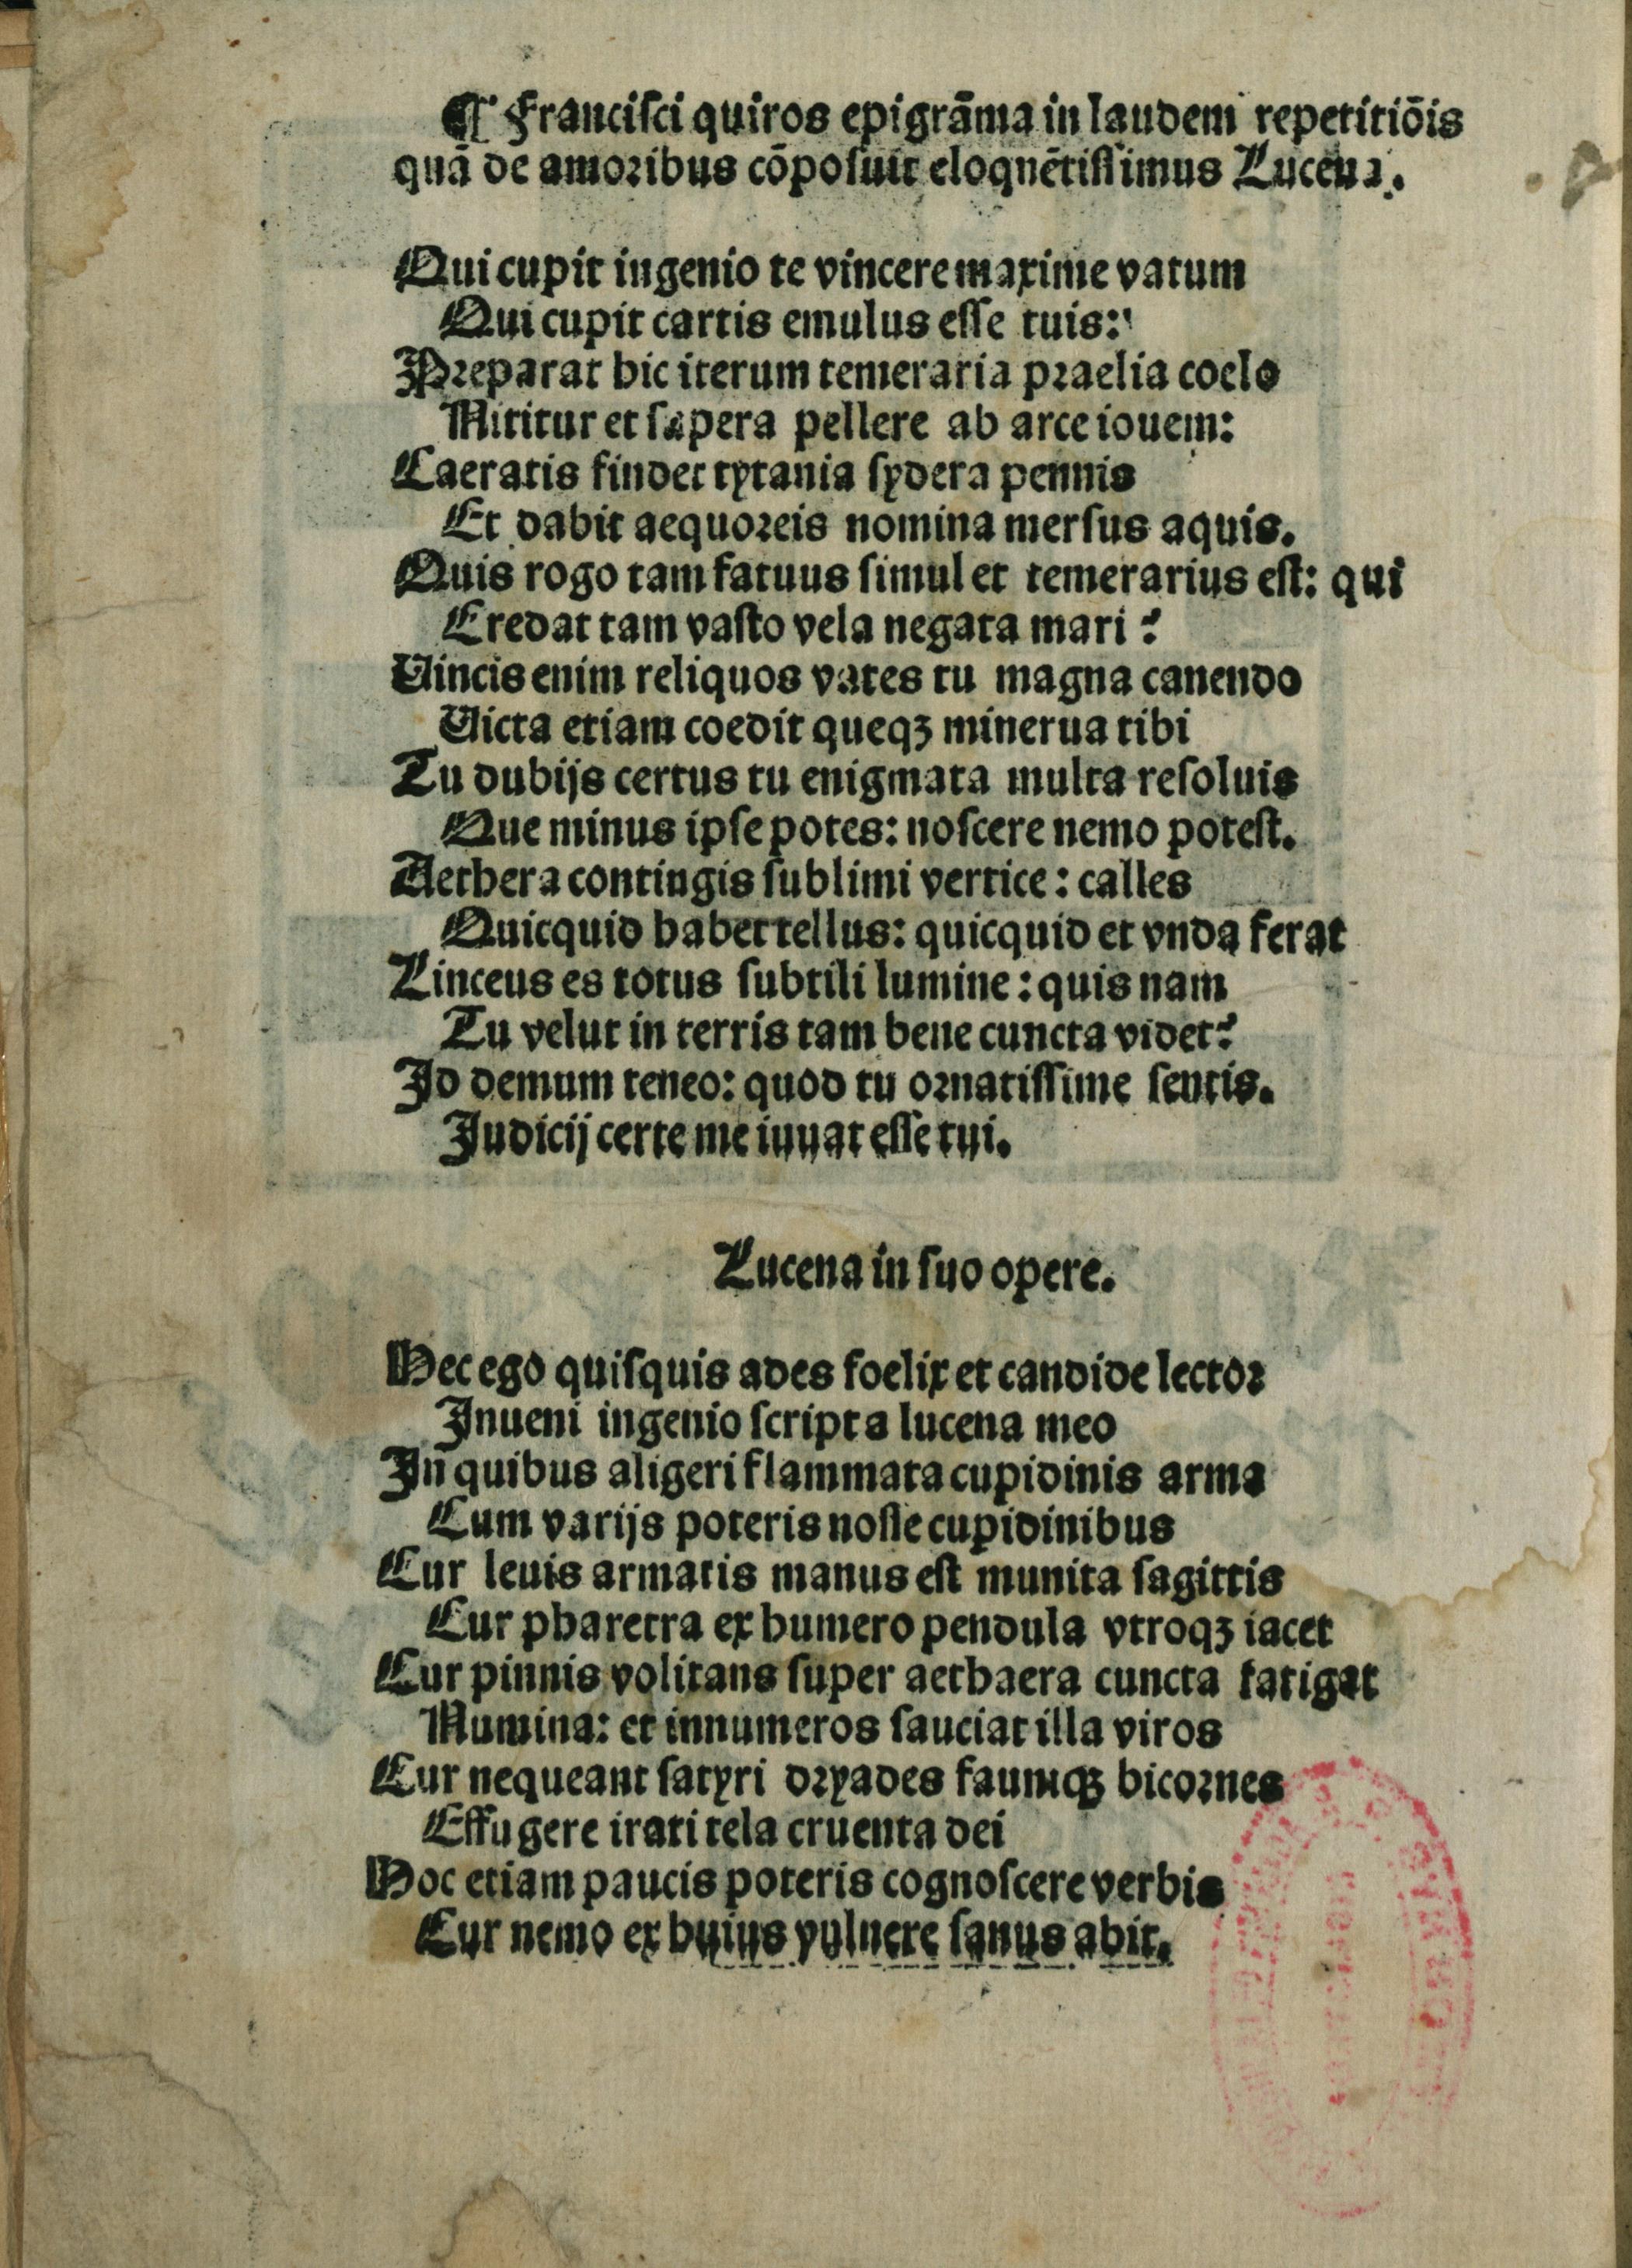 ¶ Franciſci quiros epigrāma in laudem repetitiōis
quā de amoribus cōpoſuit eloquētiſſimus Lucena.
Qui cupit ingenio te vincere maxime vatum
Qui cupit cartis emulus eſſe tuis:
Preparat hic iterum temeraria praelia coelo
Mititur et supera pellere ab arce iouem:
Caeratis findet tytania ſydera pennis
Et dabit aequoreis nomina merſus aquis.
Quis rogo tam fatuus ſimul et temerarius eſt: qui
Credat tam vaſto vela negata mari?
Uincis enim reliquos vates tu magna canendo
Uicta etiam coedit queqꝫ minerua tibi
Tu dubijs certus tu enigmata multa reſoluis
Que minus ipſe potes: noſcere nemo poteſt.
Aethera contingis ſublimi vertice: calles
Quicquid habet tellus: quicquid et vnda ferat
Linceus es totus ſubtili lumine: quis nam
Tu velut in terris tam bene cuncta videt?
Id demum teneo: quod tu ornatiſſime ſentis.
Iudicij certe me iuuat eſſe tui.
Lucena in ſuo opere.
Hec ego quiſquis ades foelix et candide lector
Inueni ingenio ſcripta lucena meo
In quibus aligeri flammata cupidinis arma
Cum varijs poteris noſſe cupidinibus
Cur leuis armatis manus eſt munita ſagittis
Cur pharetra ex humero pendula vtroqꝫ iacet
Cur pinnis volitans ſuper aethaera cuncta fatigat
Numina: et innumeros ſauciat illa viros
Cur nequeant ſatyri dryades fauniqꝫ bicornes
Effugere irati tela cruenta dei
Hoc etiam paucis poteris cognoſcere verbis
Cur nemo ex huius vulnere ſanus abit.